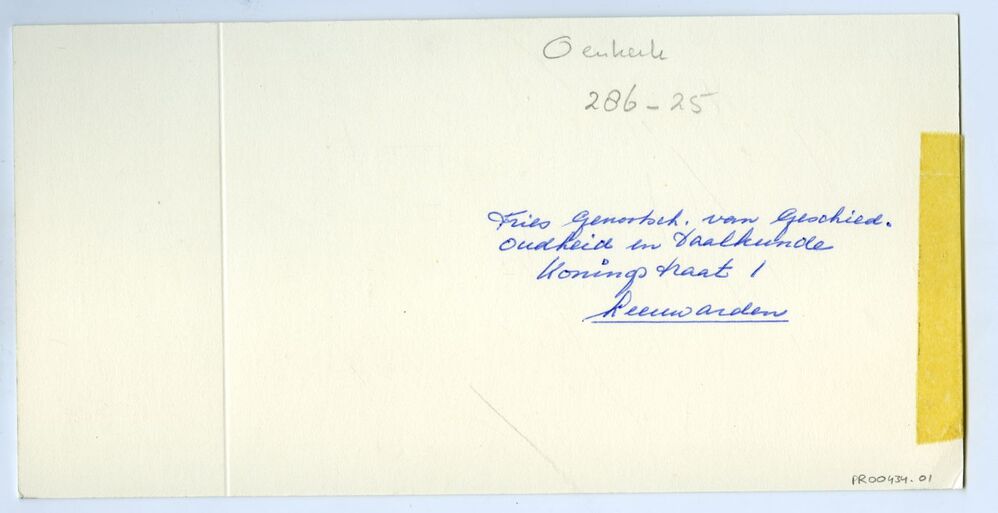 Oenkerk
286-25
Fries Genootsch. van Geschied.
Oudheid en Taalkunde
Koningstraat 1
Leeuwarden
PR00434.01